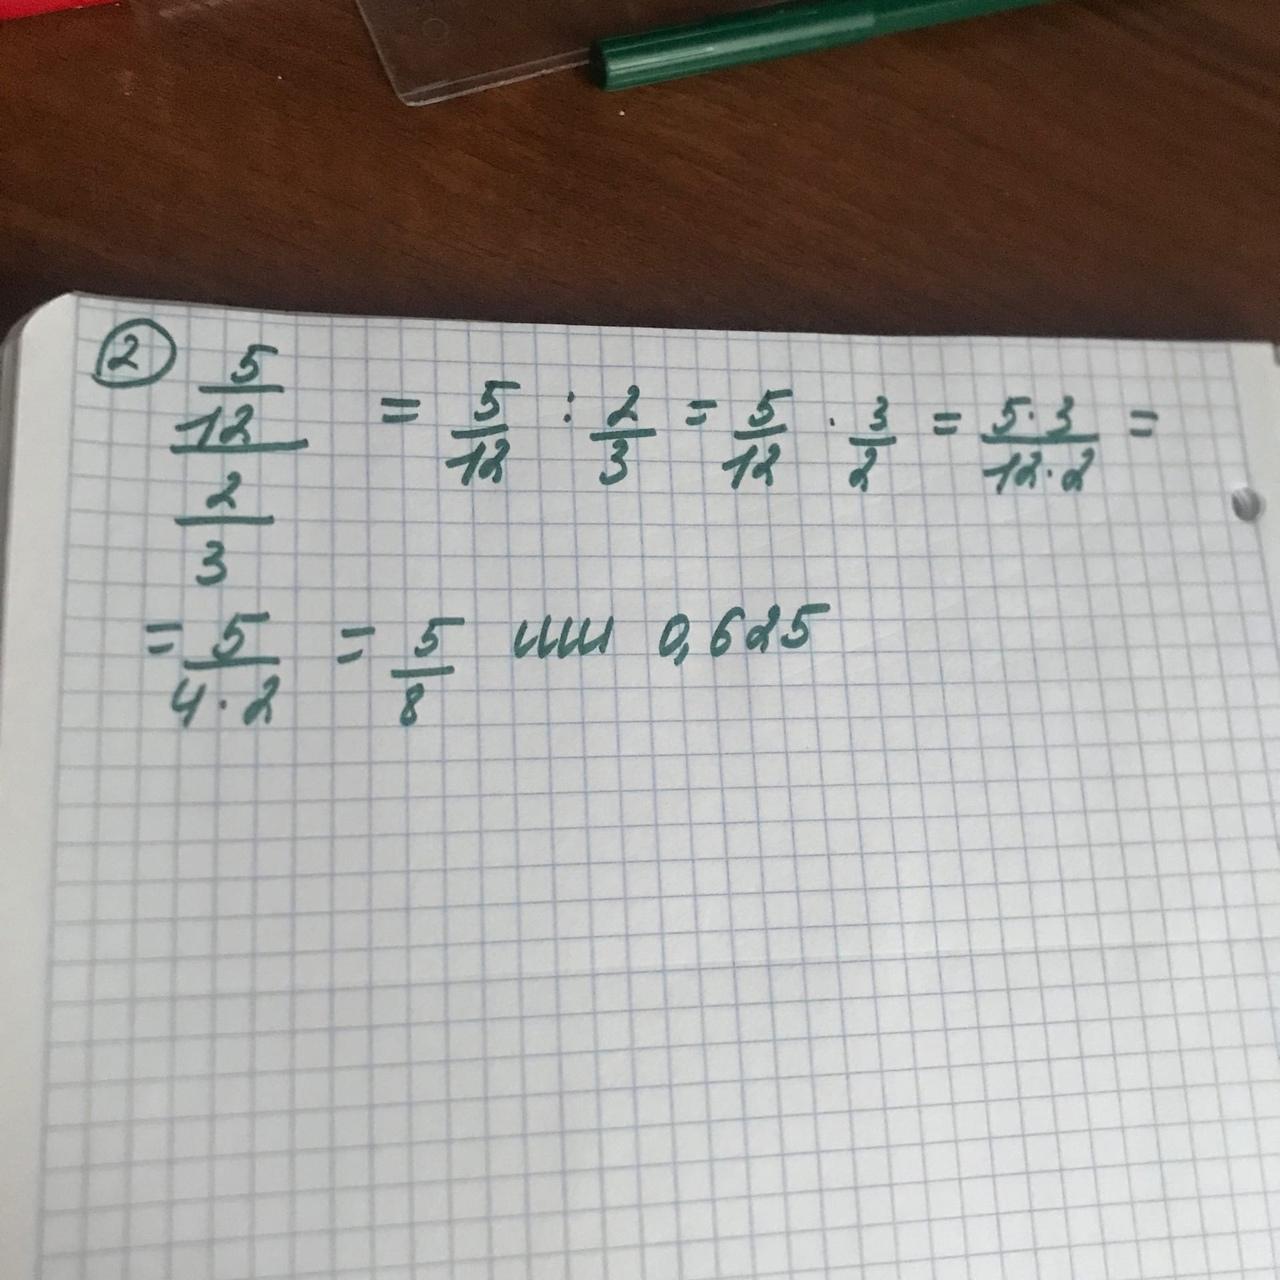 ② 5/12 / 2/3 = 5/12 : 2/3 = 5/12 · 3/2 = 5·3/12·2 =
= 5/4·2 = 5/8 или 0,625